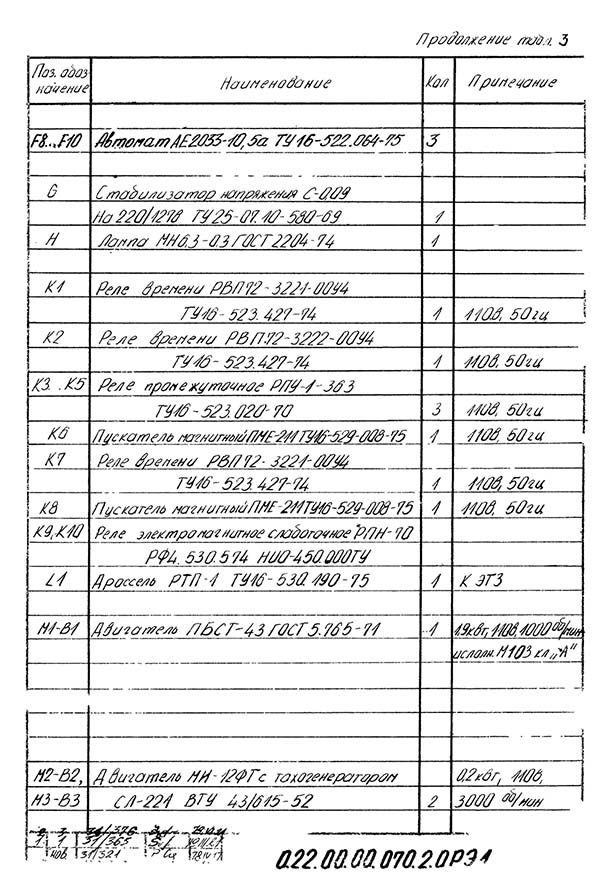 Продолжение табл. 3
Поз. обоз- Наименование Кол Примечание
начение
F8...F10 Автомат АЕ2033-10,5а ТУ16-522.064-75 3
G Стабилизатор напряжения С-009
На 220/127В ТУ25-07.10-580-69 1
Н Лампа МН6,3-0,3 ГОСТ 2204-74 1
К1 Реле времени РВП72-3221-00У4
ТУ16-523.427-74 1 110В, 50гц
К2 Реле времени РВП72-3222-00У4
ТУ16-523.427-74 1 110В, 50гц
К3...К5 Реле промежуточное РПУ-1-363
ТУ16-523.020-70 3 110В, 50гц
К6 Пускатель магнитный ПМЕ-211 ТУ16-529-008-75 1 110В, 50гц
К7 Реле времени РВП72-3221-00У4
ТУ16-523.427-74 1 110В, 50гц
К8 Пускатель магнитный ПМЕ-211 ТУ16-529-008-75 1 110В, 50гц
К9, К10 Реле электромагнитное слаботочное РПН-70
РФ4.530.574 НИО-450.000ТУ
L1 Дроссель РТП-1 ТУ16-530.190-75 1 К ЭТЗ
М1-В1 Двигатель ПБСТ-43 ГОСТ 5.765-71 1 1.9квт, 110В, 1000 об/мин
исполн. М103 кл. „А"
М2-В2, Двигатель МИ-12ФТ с тахогенератором 0.2квт, 110В,
М3-В3 СЛ-221 ВТУ 43/615-52 2 3000 об/мин
1 1 31/363
нов. 31/321
0.22.00.00.070.2.0РЭ1